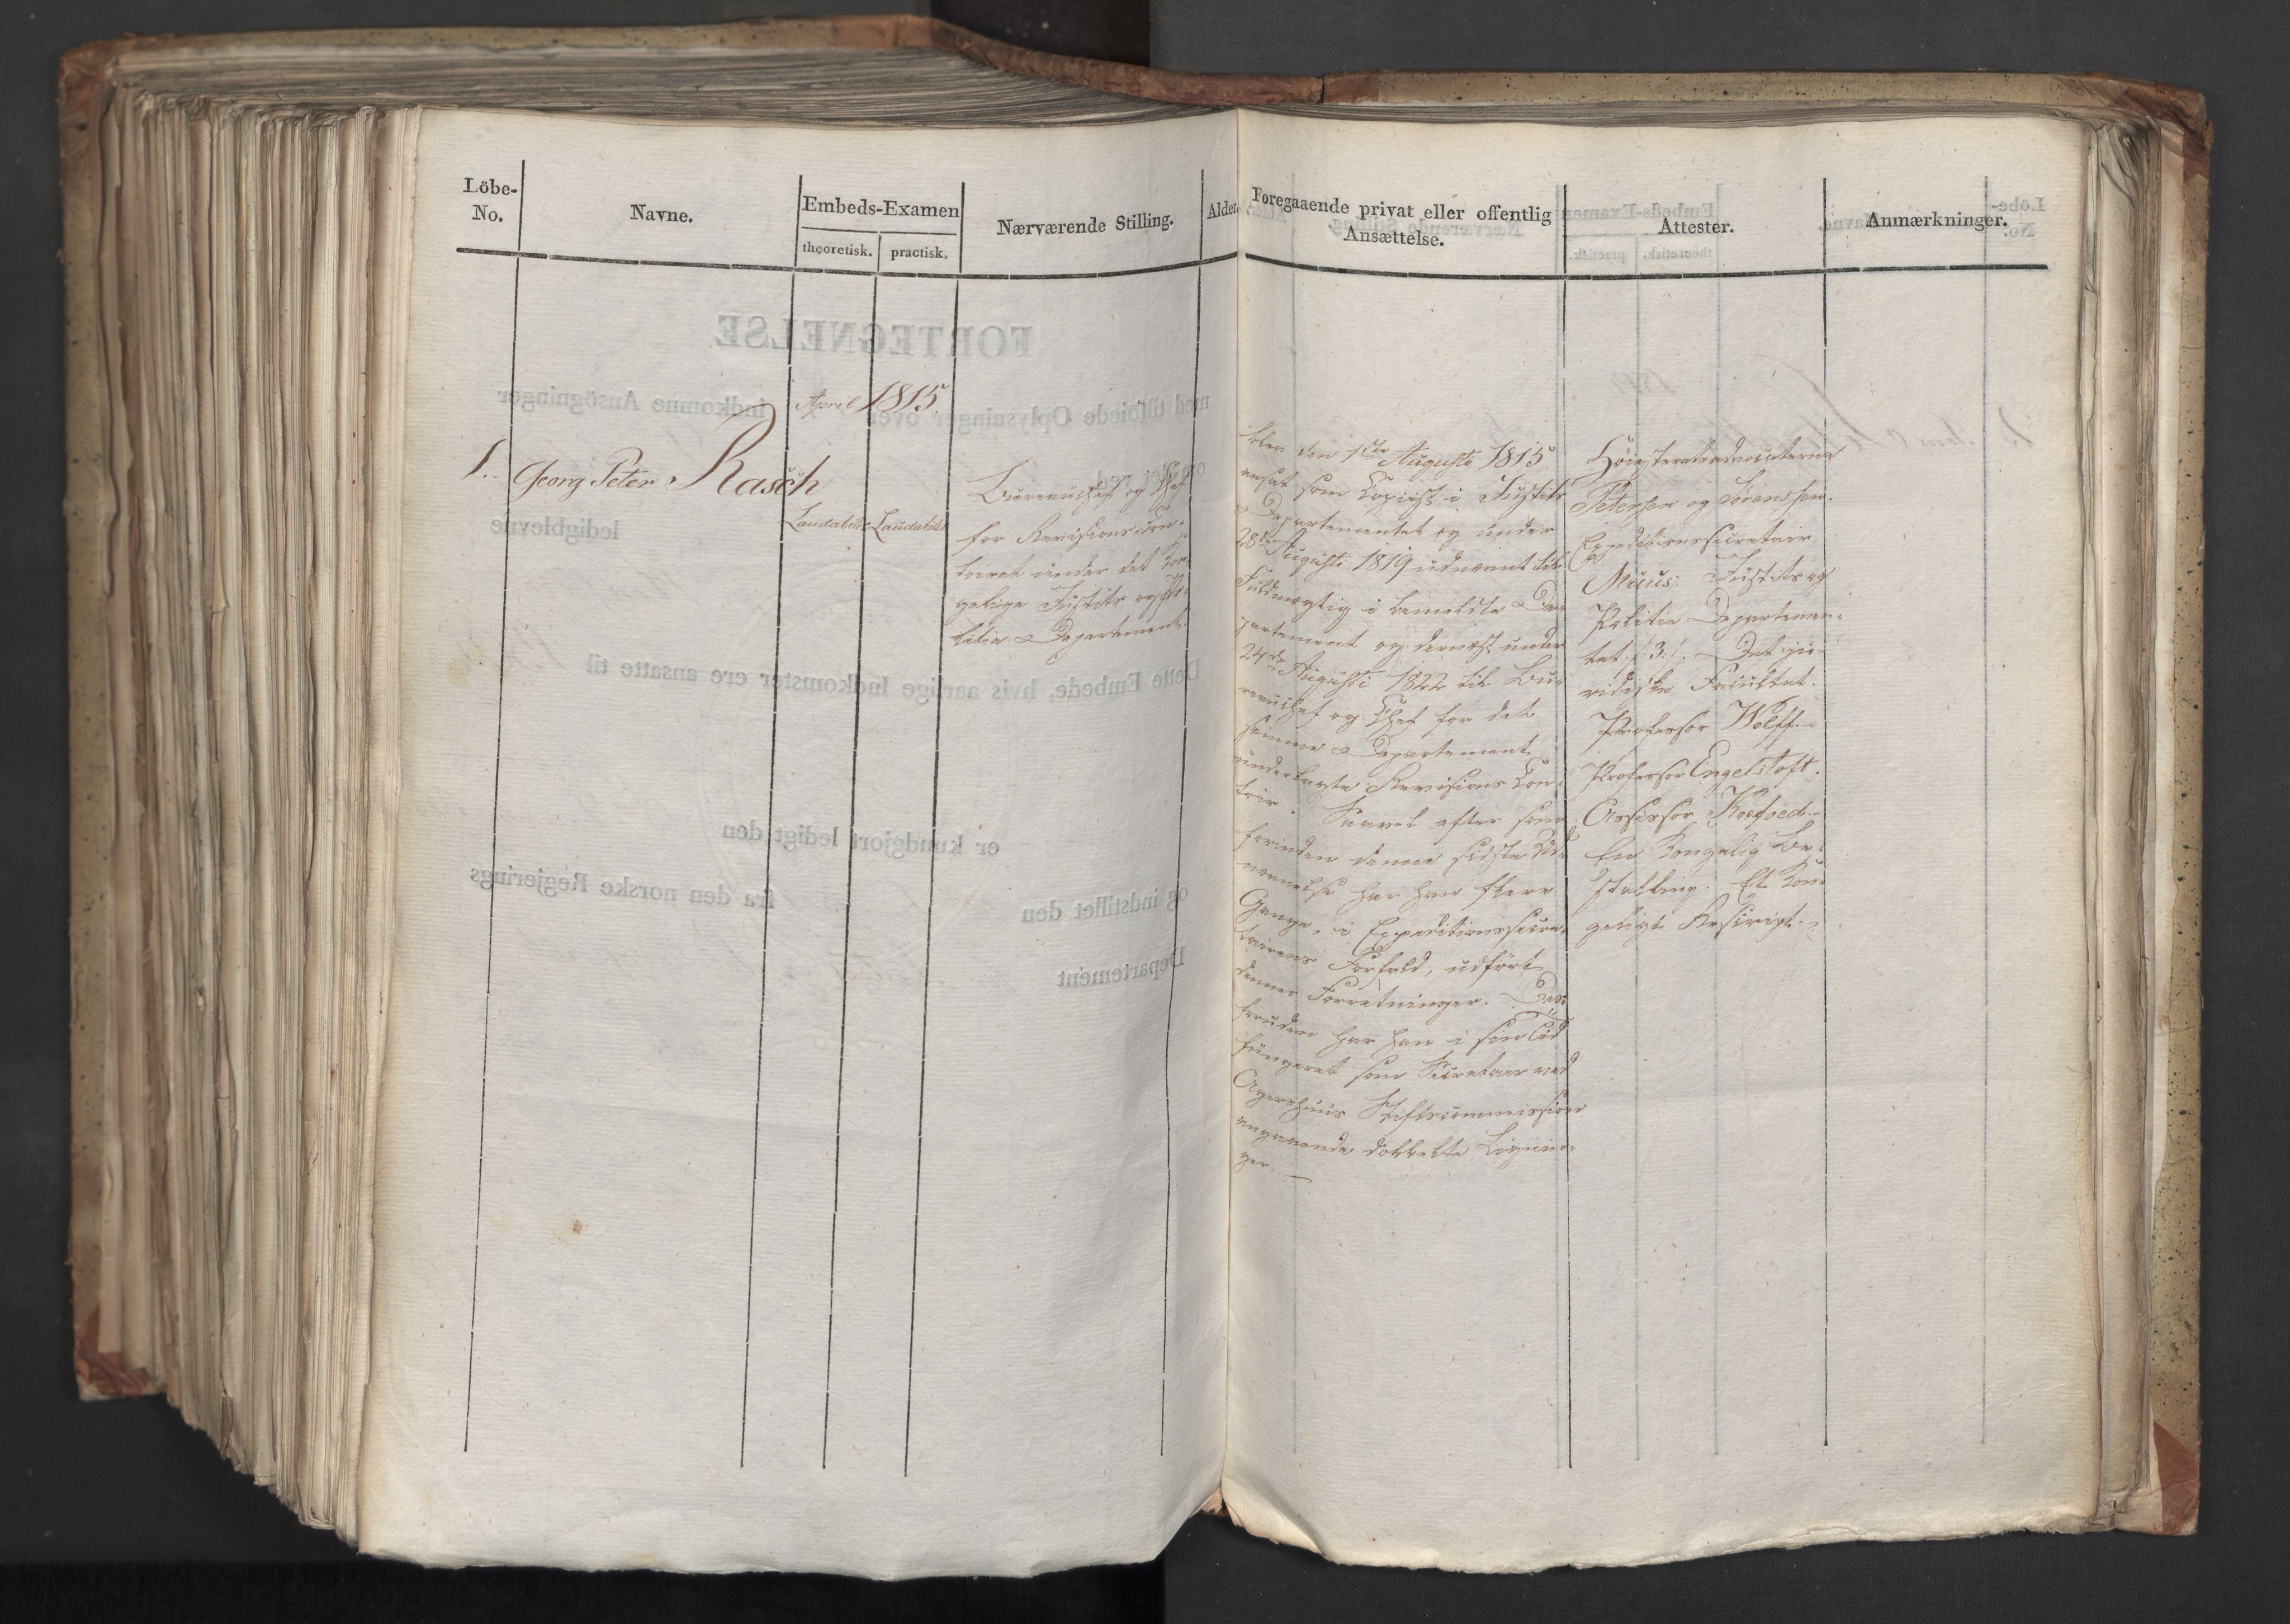 Löbe-
No.
Navne.
Embeds-Examen
theoretisk.
practisk.
Nærværende Stilling.
Alder.
Foregaaende privat eller offentlig
Ansættelse.
Attester.
Anmærkninger.
April 1815.
1. Georg Peter Rasch
Laudabilis Laudabilis
Bureauchef og Chef
for Revisions Con-
toiret under det Kon-
gelige Justits og Po-
litie Departement.
Blev den 1ste Augusti 1815
ansat som Copiist i Justits
Departementet og under
28de Augusti 1819 udnævnt til
Fuldmægtig i bemeldte De-
partement og dernæst under
24de Augusti 1822 til Bu-
reauchef og Chef for det
samme Departement
underlagte Revisions Con-
toir. Saavel efter som
forinden denne sidste Ud-
nævnelse har han flere
Gange, i Expeditionssecre-
tairens Forfald, udført
dennes Forretninger. Des-
foruden har han i sin Tid
fungeret som Secretair ved
Agershuus Stiftscommission
angaaende dobbelte Lignin-
ger. —
Höiesteretsadvocaterne
Petersen og Sörensen.
Expeditionssecretair
Muus. Justits og
Politie Departemen-
tet /:3:/. Det ju-
ridiske Facultet.
Professor Wolff.
Professor Engelstoft.
Assessor Koefoed.
En Kongelig Be-
stalling. Et Kon-
geligt Rescript.